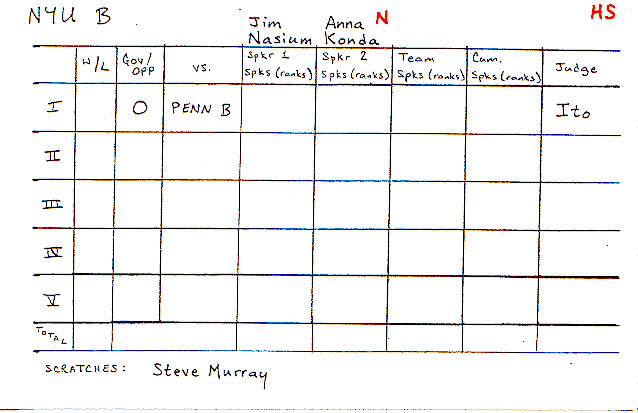 NYU B Jim Anna N HS
Nasium Konda
W/L Gov/OPP vs. Spkr 1 Spks (ranks) Spkr 2 Spks (ranks) Team Spks (ranks) Cum. Spks (ranks) Judge
I O PENN B Ito
II
III
IV
V
TOTAL
SCRATCHES: Steve Murray